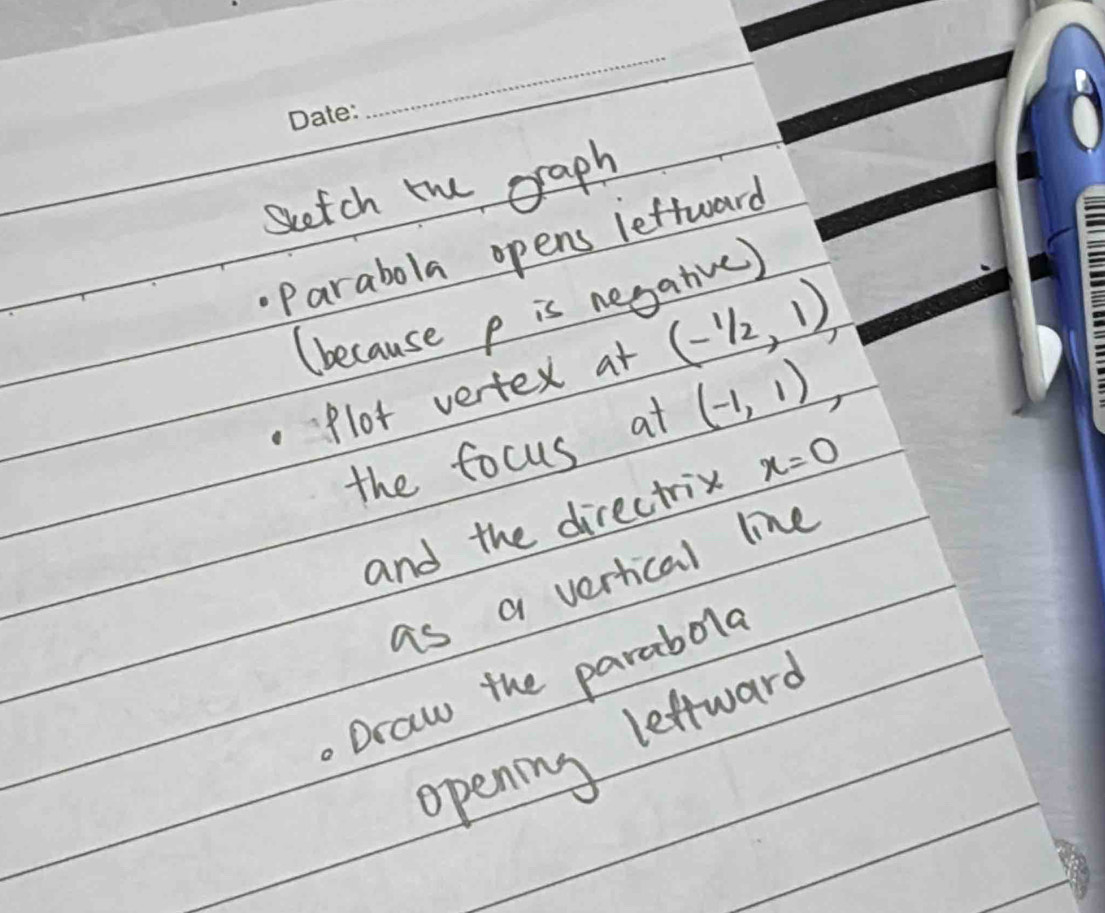 Date:
Sketch the graph
• Parabola opens leftward
(because p is negative)
• Plot vertex at (-1/2, 1),
the focus at (-1, 1),
and the directrix x=0
as a vertical line
• Draw the parabola
opening leftward